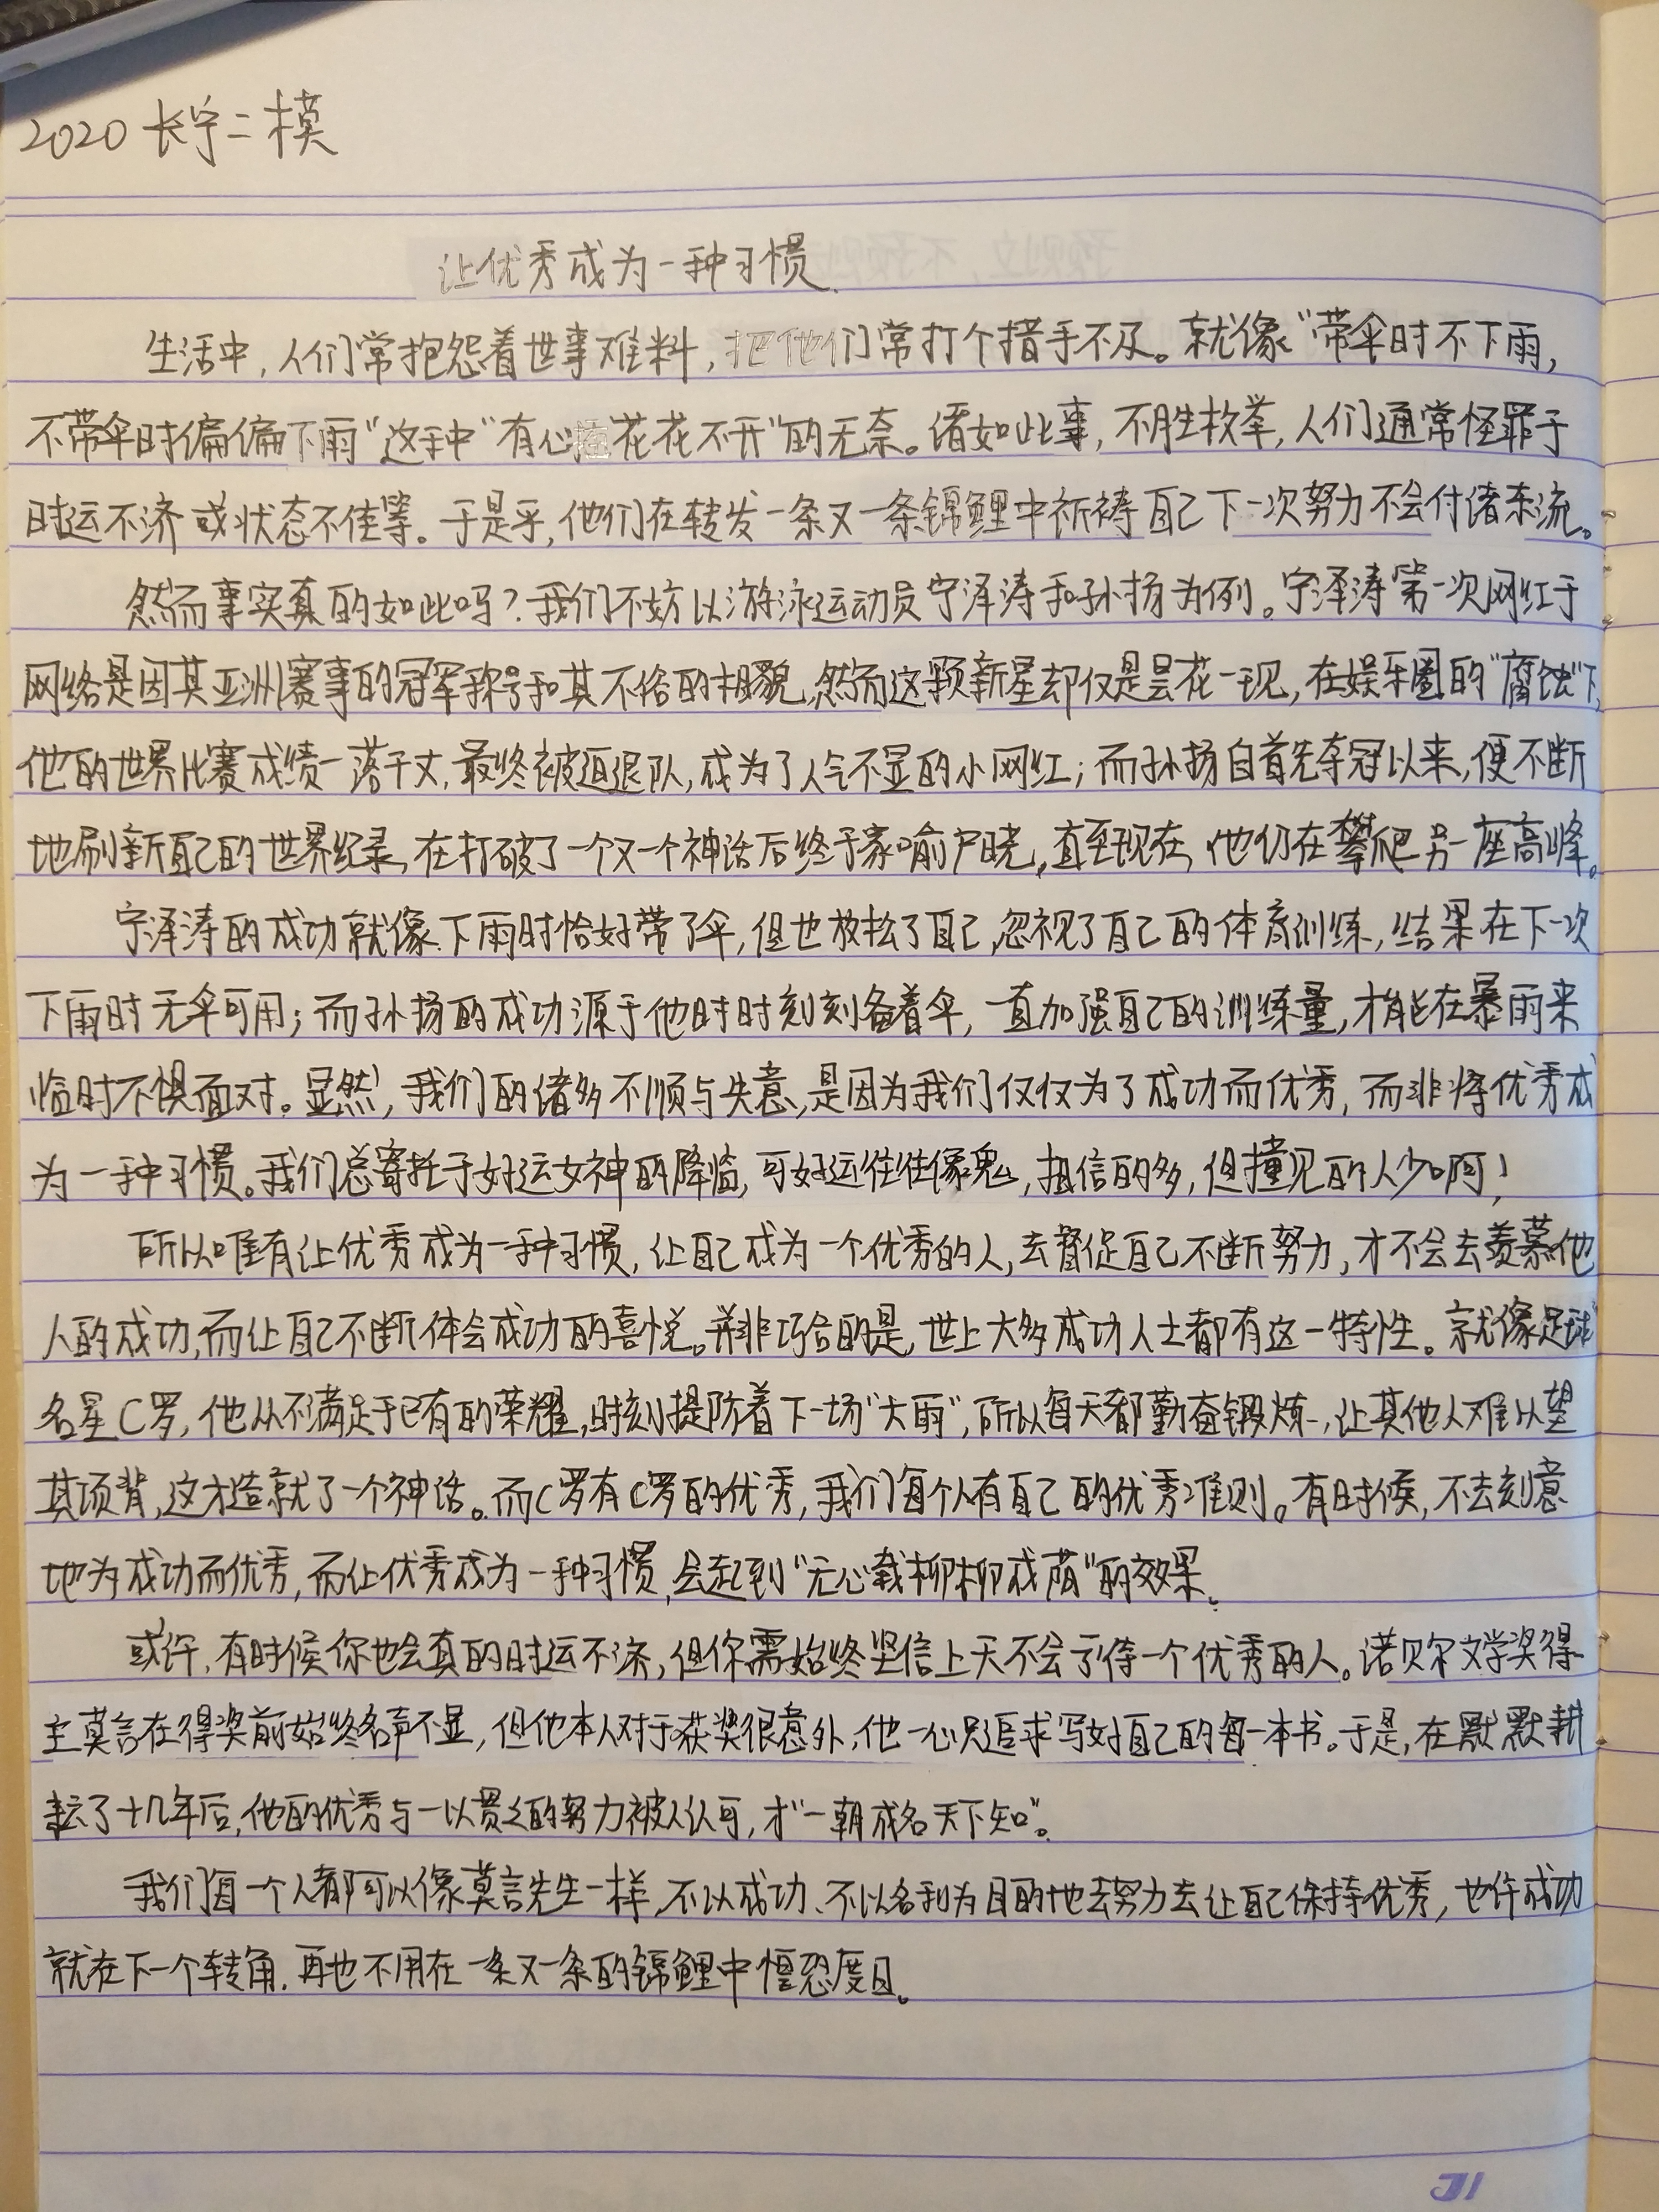 2020 长宁二模
让优秀成为一种习惯
生活中,人们常抱怨着世事难料,把他们常打个措手不及。就像“带伞时不下雨,
不带伞时偏偏下雨”这种“有心插花花不开”的无奈。诸如此事,不胜枚举,人们通常怪罪于
时运不济或状态不佳等。于是乎,他们在转发一条又一条锦鲤中祈祷自己下一次努力不会付诸东流。
然而事实真的如此吗?我们不妨以游泳运动员宁泽涛和孙扬为例。宁泽涛第一次网红于
网络是因其亚洲赛事的冠军称号和其不俗的相貌,然而这颗新星却仅是昙花一现,在娱乐圈的“腐蚀”下,
他的世界比赛成绩一落千丈,最终被迫退队,成为了人气不显的小网红;而孙扬自首先夺冠以来,便不断
地刷新自己的世界纪录,在打破了一个又一个神话后终于家喻户晓,直至现在,他仍在攀爬另一座高峰。
宁泽涛的成功就像下雨时恰好带了伞,但也放松了自己,忽视了自己的体育训练,结果在下一次
下雨时无伞可用;而孙扬的成功源于他时时刻刻备着伞,一直加强自己的训练量,才能在暴雨来
临时不惧面对。显然,我们的诸多不顺与失意,是因为我们仅仅为了成功而优秀,而非将优秀成
为一种习惯。我们总寄托于好运女神的降临,可好运往往像鬼,相信的多,但撞见的人少啊!
所以唯有让优秀成为一种习惯,让自己成为一个优秀的人,去督促自己不断努力,才不会去羡慕他
人的成功,而让自己不断体会成功的喜悦。并非巧合的是,世上大多成功人士都有这一特性。就像足球
名星C罗,他从不满足于已有的荣耀,时刻提防着下一场“大雨”,所以每天都勤奋锻炼,让其他人难以望
其项背,这才造就了一个神话。而C罗有C罗的优秀,我们每个人有自己的优秀准则。有时候,不去刻意
地为成功而优秀,而让优秀成为一种习惯,会起到“无心栽柳柳成荫”的效果。
或许,有时候你也会真的时运不济,但你需始终坚信上天不会亏待一个优秀的人。诺贝尔文学奖得
主莫言在得奖前始终名声不显,但他本人对于获奖很意外,他一心只追求写好自己的每一本书。于是,在默默耕
耘了十几年后,他的优秀与一以贯之的努力被人认可,才“一朝成名天下知”。
我们每一个人都可以像莫言先生一样,不以成功、不以名利为目的地去努力去让自己保持优秀,也许成功
就在下一个转角,再也不用在一条又一条的锦鲤中惶恐度日。